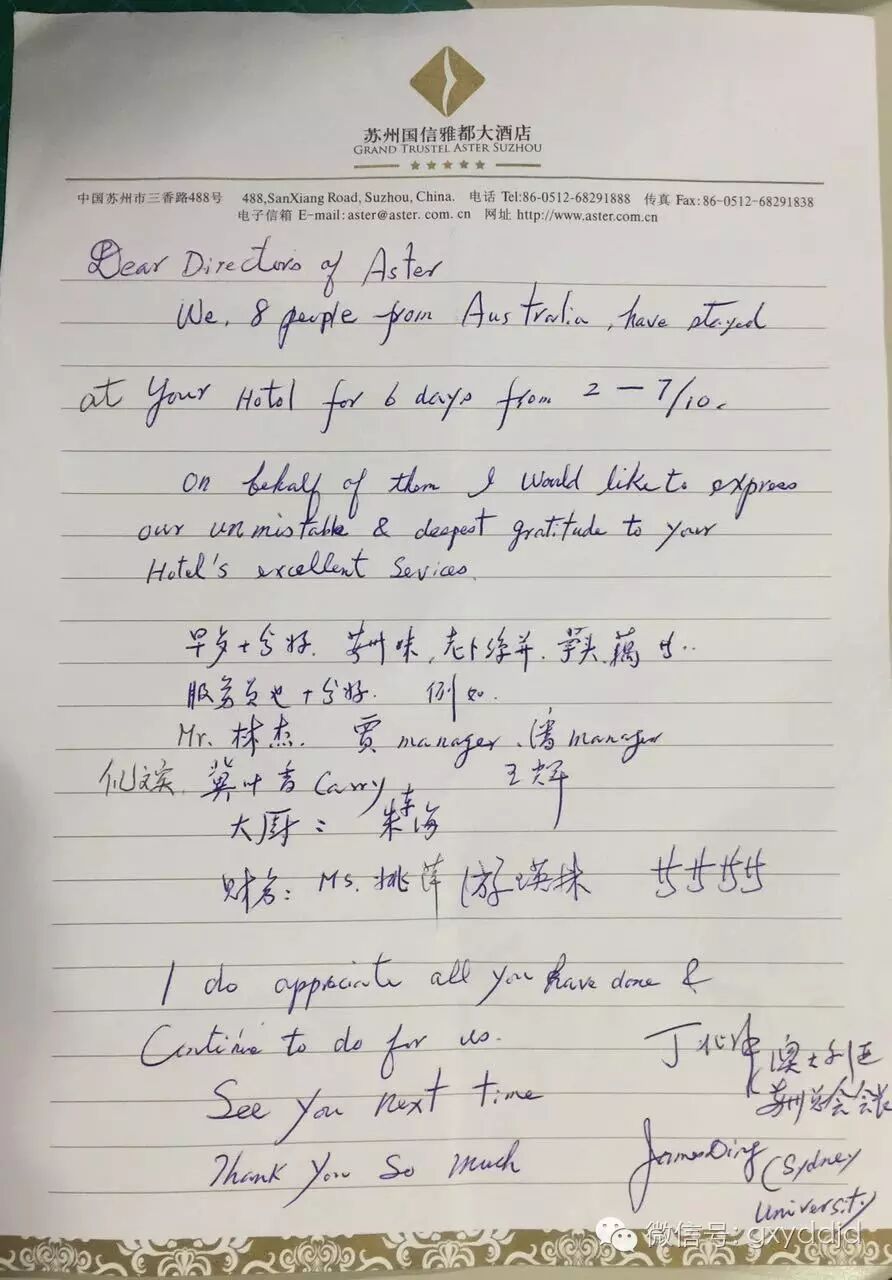 苏州国信雅都大酒店
GRAND TRUSTEL ASTER SUZHOU
中国苏州市三香路488号 488,SanXiang Road, Suzhou, China. 电话 Tel:86-0512-68291888 传真 Fax:86-0512-68291838
电子信箱 E-mail:aster@aster.com.cn 网址 http://www.aster.com.cn
Dear Directors of Aster
We, 8 people from Australia, have stayed
at Your Hotel for 6 days from 2 — 7/10.
On behalf of them I Would like to express
our unmistable & deepest gratitude to your
Hotel's excellent Sevices.
早歺十分好. 苏州味, 芋头, 藕
服务员也十分好. 例如.
Mr. 林杰. 贾 manager, 潘 manager
冀叶青 Carry 王辉
大厨: 海
财务: Ms. 姚萍
I do appreciate all you have done &
Continue to do for us.
See you next time 丁 澳大利亚
苏州总会会长
Thank You So Much James Ding (Sydney
University
微信号: gxyddjd